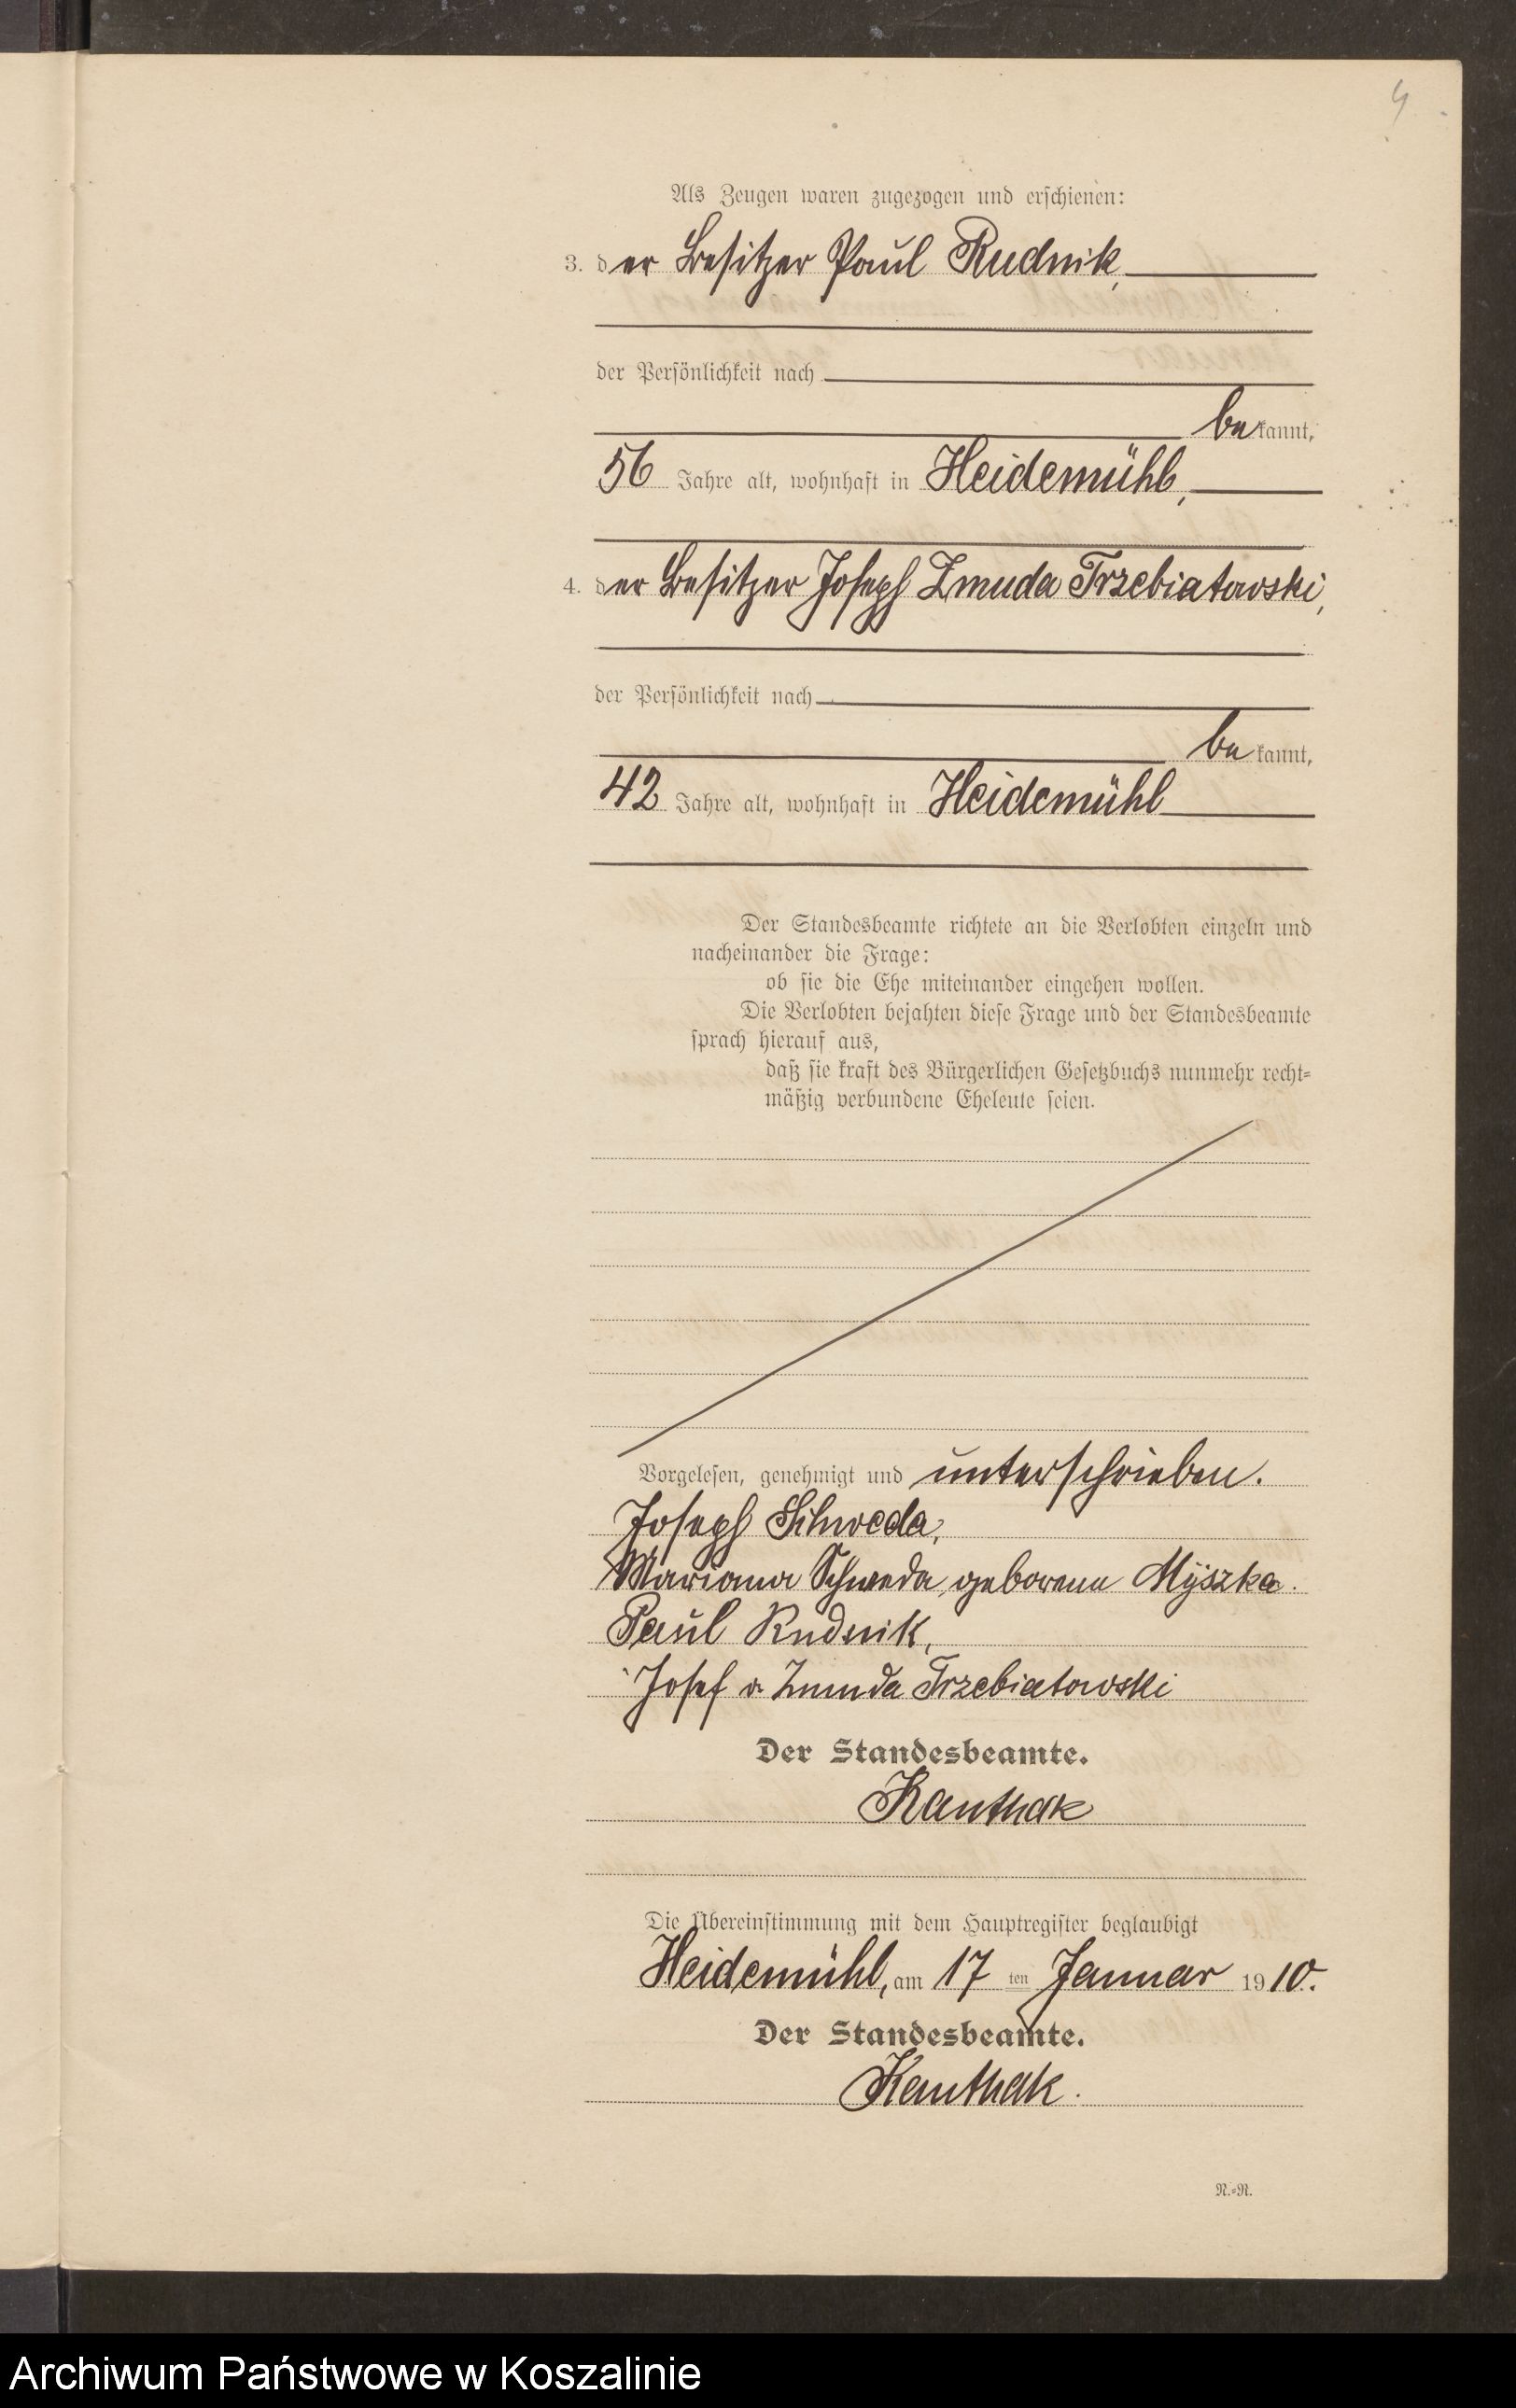 4
Als Zeugen waren zugezogen und erschienen:
3. der Besitzer Paul Rudnik,
der Persönlichkeit nach
bekannt,
56 Jahre alt, wohnhaft in Heidemühl,
4. der Besitzer Joseph Zmuda Trzebiatowski,
der Persönlichkeit nach
bekannt,
42 Jahre alt, wohnhaft in Heidemühl
Der Standesbeamte richtete an die Verlobten einzeln und
nacheinander die Frage:
ob sie die Ehe miteinander eingehen wollen.
Die Verlobten bejahten diese Frage und der Standesbeamte
sprach hierauf aus,
daß sie kraft des Bürgerlichen Gesetzbuchs nunmehr recht-
mäßig verbundene Eheleute seien.
Vorgelesen, genehmigt und unterschrieben.
Joseph Schweda,
Mariana Schweda, geborene Myszka.
Paul Rudnik,
Josef v. Zmuda Trzebiatowski
Der Standesbeamte.
Kanthak
Die Übereinstimmung mit dem Hauptregister beglaubigt
Heidemühl, am 17ten Januar 1910.
Der Standesbeamte.
Kanthak.
N.-N.
Archiwum Państwowe w Koszalinie